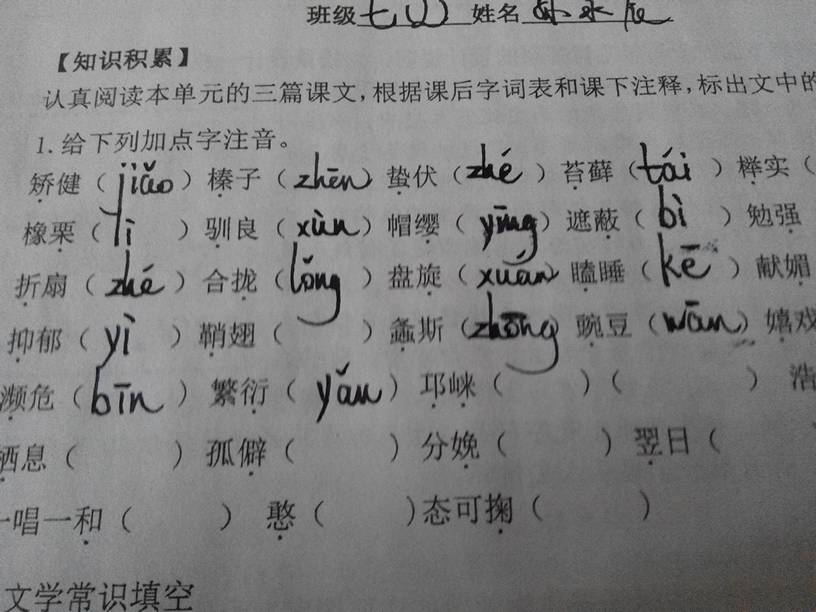 班级 七(4) 姓名
【知识积累】
认真阅读本单元的三篇课文,根据课后字词表和课下注释,标出文中的
1. 给下列加点字注音。
矫健(jiǎo)榛子(zhēn)蛰伏(zhé)苔藓(tái)榉实(
橡栗(lì)驯良(xùn)帽缨(yīng)遮蔽(bì)勉强
折扇(zhé)合拢(lǒng)盘旋(xuán)瞌睡(kē)献媚
抑郁(yì)鞘翅( )螽斯(zhōng)豌豆(wān)嬉戏
濒危(bīn)繁衍(yǎn)邛崃( )( )浩
栖息( )孤僻( )分娩( )翌日(
一唱一和( )憨( )态可掬( )
文学常识填空